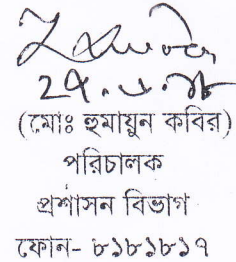 (মোঃ হুমায়ুন কবির)
পরিচালক
প্রশাসন বিভাগ
ফোন- ৮১৮১৮১৭